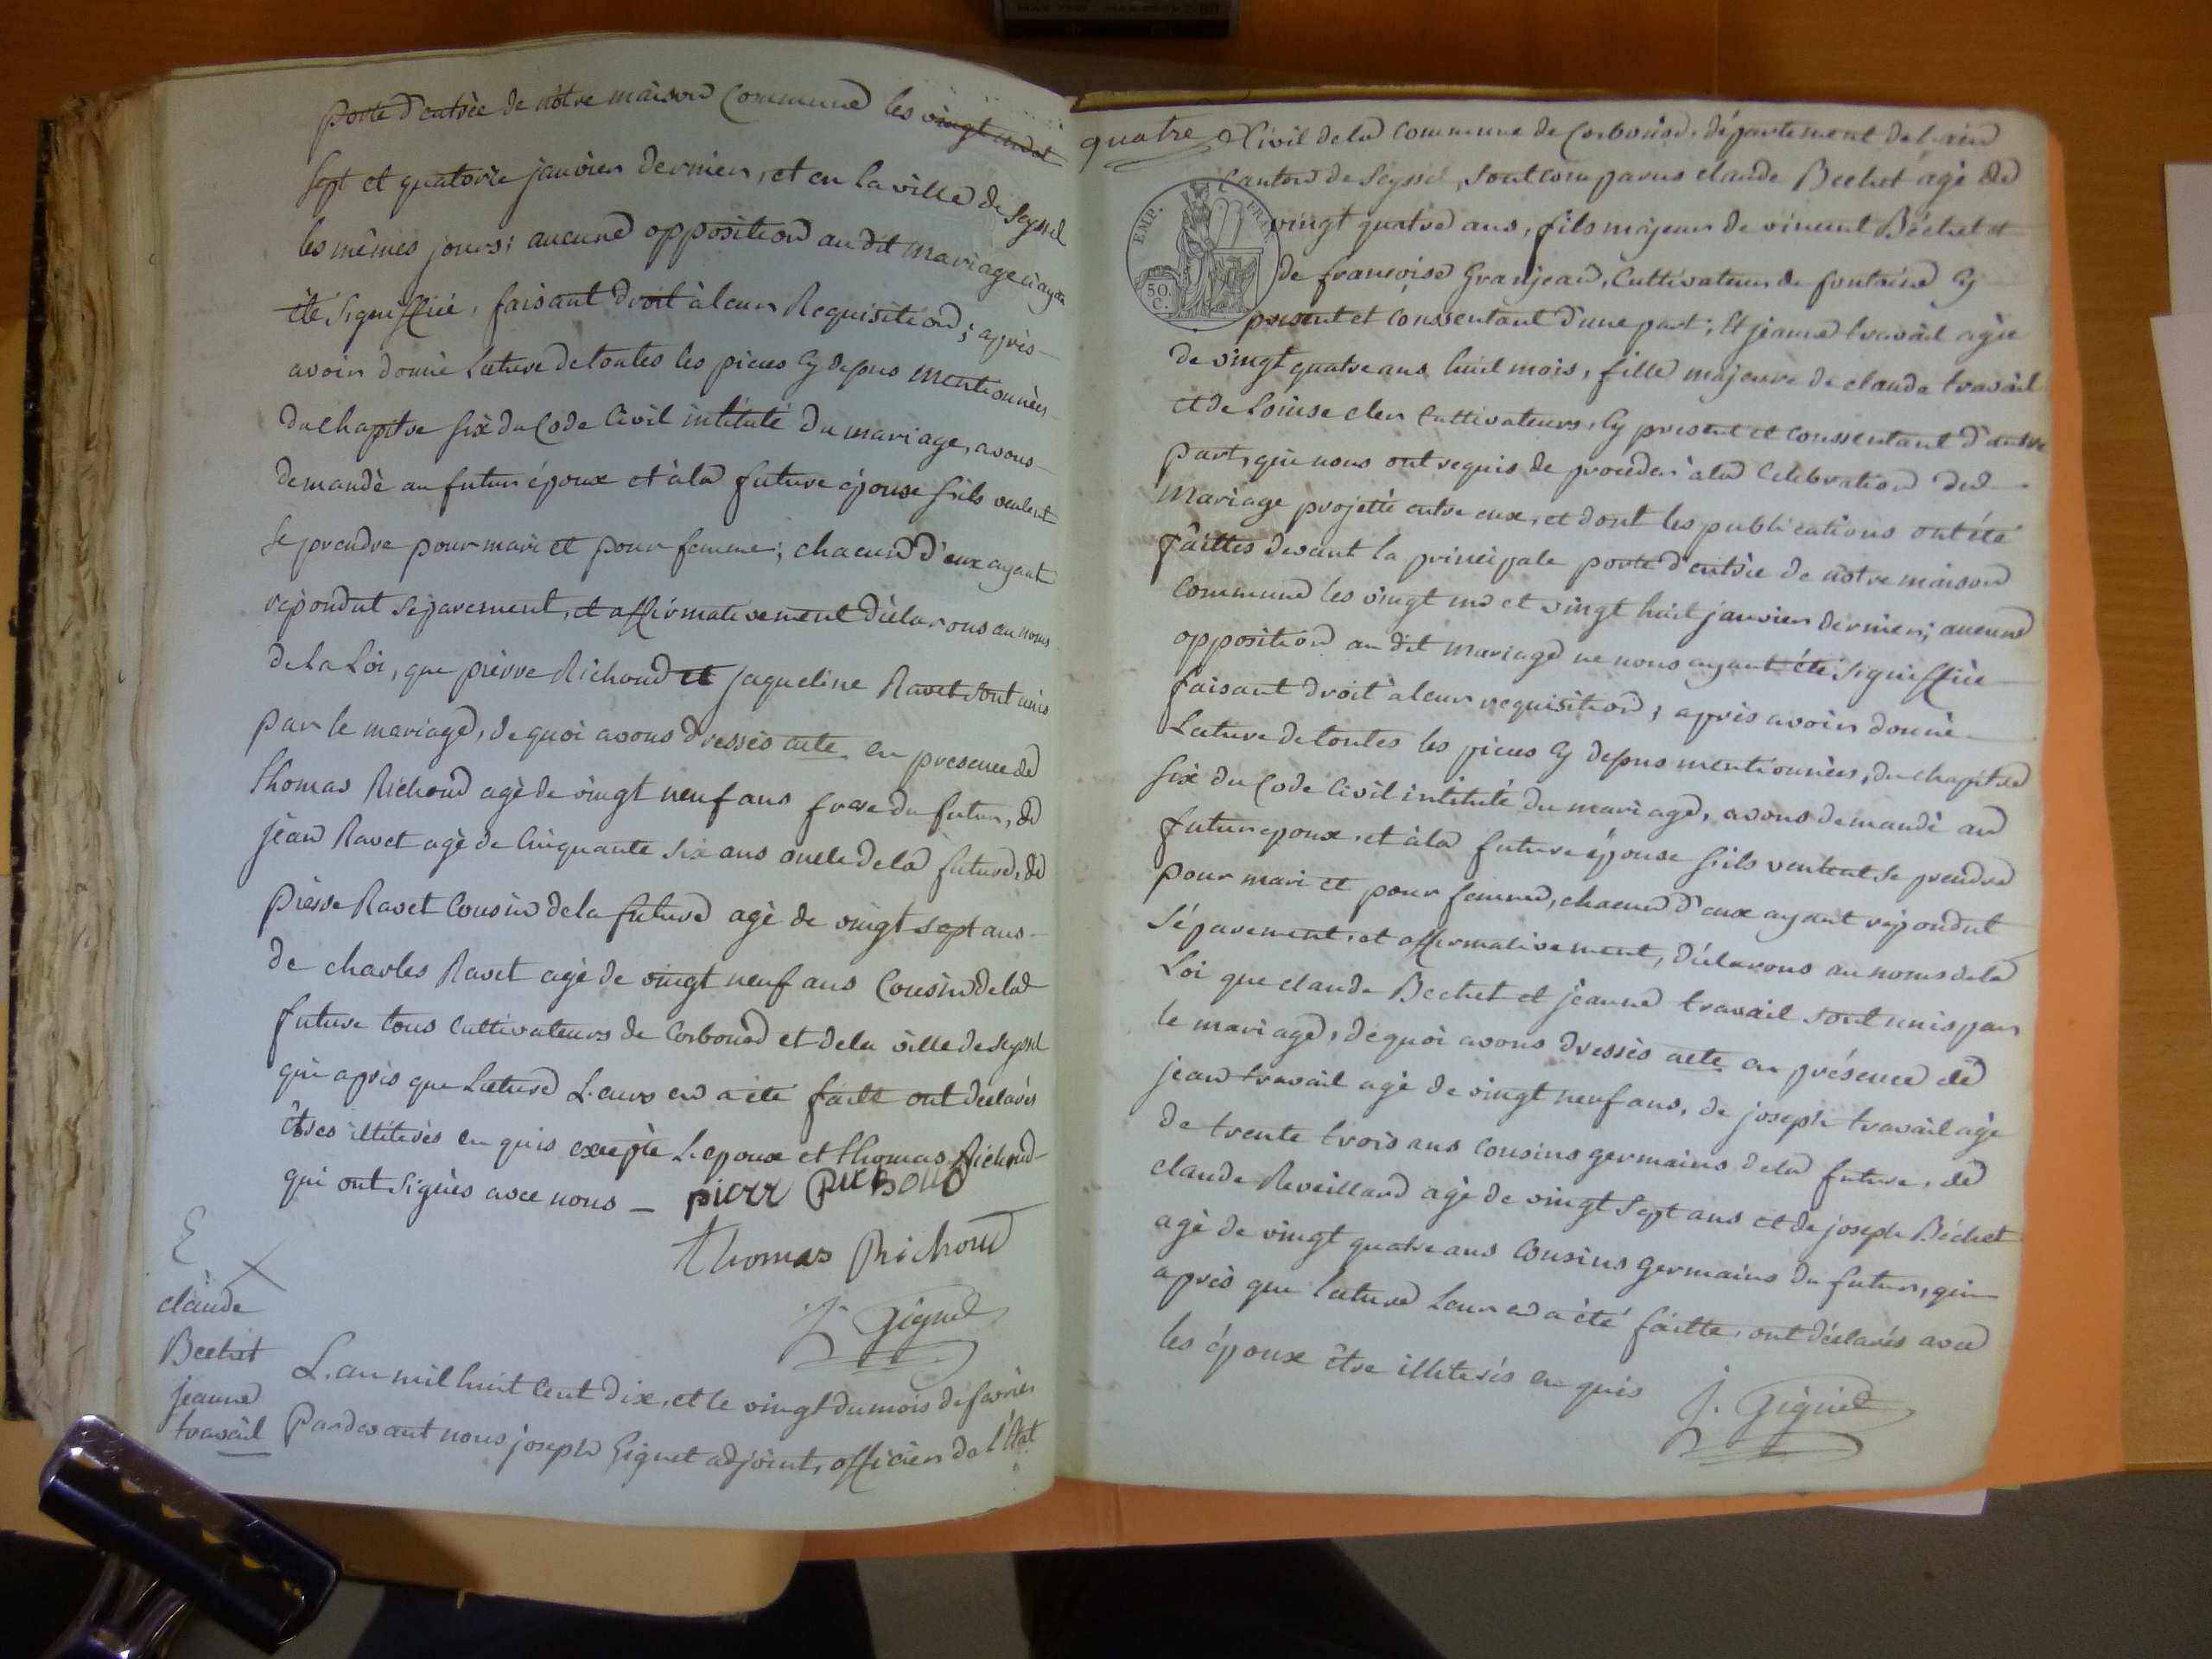 porte d'entrèe de nôtre màison Commune les vingt
Sept et quatorze janvier dernier, et en la ville de Seyssel
les mêmes jours; aucune opposition au dit mariage n'ayan
été Signiffiée, faisant droit à leur Requisition; après
avoir donnè Lecture de toutes les pieces Cy dessus mentionnèes
du chapitre six du Code Civil intitulé Du mariage, avons
demandè au futur époux et à la future épouse s'ils veulent
se prendre pour mari et pour femme; chacun d'eux ayant
répondut séparement, et affirmativement déclarons au noms
de la Loi, que pièrre Richoud et Jaqueline Ravet sont unis
par le mariage, de quoi avons dressés acte en presence de
Thomas Richoud agè de vingt neuf ans frere du futur, de
jean Ravet agè de Cinquante six ans oncle de la future, de
pièrre Ravet Cousin de la future agè de vingt sept ans
de charles Ravet agè de vingt neuf ans Cousin de la
future tous Cultivateurs de Corbonod et de la ville de Seyssel
qui après que Lecture Leurs en a ete faite ont declarés
êtres illiterés en quis exceptè L'epoux et Thomas Richoud
qui ont Signès avec nous _ pierr Richoud
Thomas Richoud
J. Gignet
claude
Bechet
jeanne
travail
L'an mil huit Cent dix, et le vingt du mois de favrier
Pardevant nous joseph Gignet adjoint, officier de l'État
quatre
Civil de la Commune de Corbonod, département de l'ain
Canton de Seyssel, sont comparus claude Bechet agè de
EMP. FRA.
50 C.
vingt quatre ans, fils majeur de vincent Béchet et
de francoise Granjean, Cultivateur de fontaine Cy
present et consentant d'une part; Et jeanne travail agèe
de vingt quatre ans huit mois, fille majeure de claude travail
et de Loüise cler Cultivateurs, Cy present et consentant d'autre
part, qui nous ont requis de proceder à la Celebration du
Mariage projettè entre eux, et dont les publications ont été
fâittes devant la principale porte d'entrèe de nôtre màison
Commune les vingt un et vingt huit janvier dernier; aucune
opposition au dit mariage ne nous ayant été Signiffièe
faisant droit à leur requisition; après avoir donnè
Lecture de toutes les pieces Cy dessus mentionnèes, du chapitre
six du Code Civil intitulé du mariage, avons demandè au
futur epoux, et à la future épouse s'ils veulent se prendre
pour mari et pour femme, chacun d'eux ayant répondut
Séparement, et affirmativement, déclarons au noms de la
Loi que claude Bechet et jeanne travail sont unis par
le mariage, de quoi avons dressès acte en présence de
jean travail agè de vingt neuf ans, de joseph travail agè
de trente trois ans Cousins germains de la future, de
claude Reveillard agè de vingt Sept ans et de joseph Béchet
agè de vingt quatre ans Cousins germains du futur, qui
après que lecture Leur en a été faitte, ont déclarés avec
les époux être illiterés en quis
J. Gignet